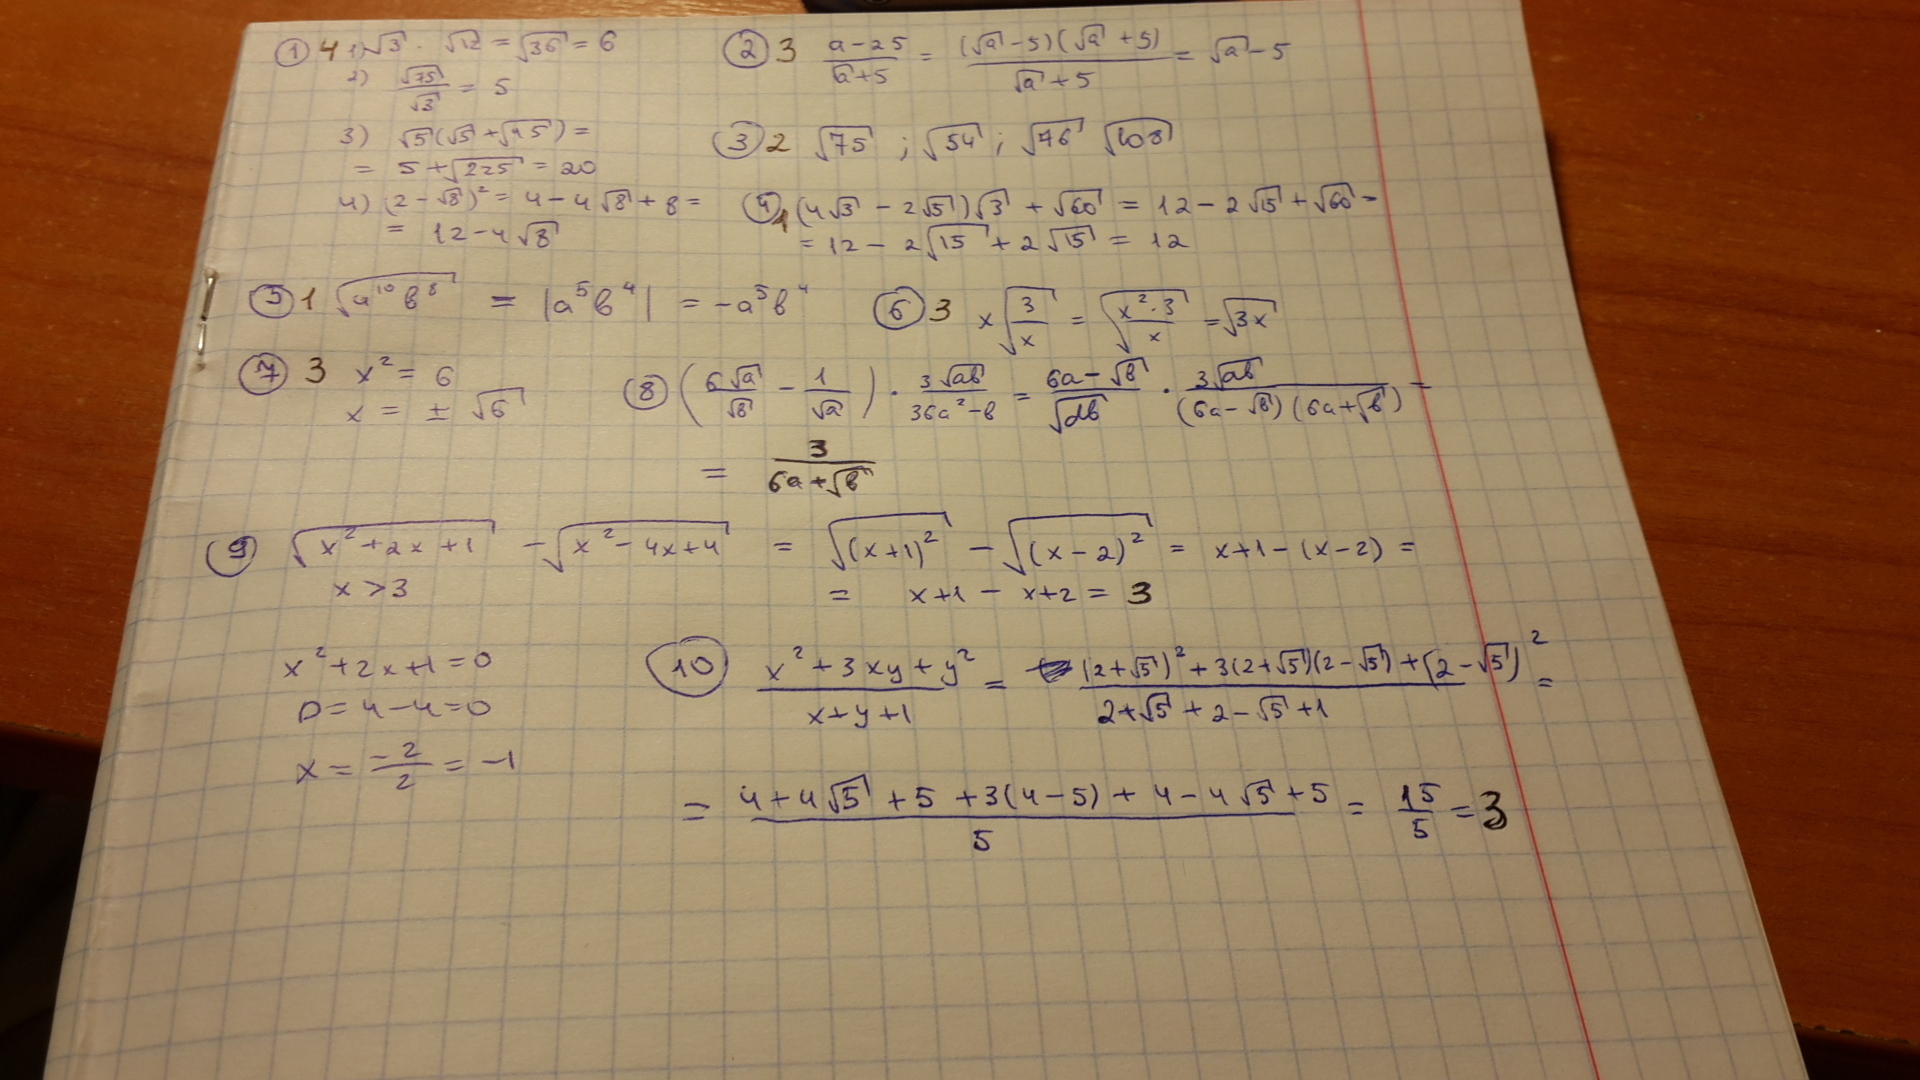 ① 4 1) √3 · √12 = √36 = 6
2) √75/√3 = 5
3) √5(√5 + √45) =
= 5 + √225 = 20
4) (2 - √8)² = 4 - 4√8 + 8 =
= 12 - 4√8
② 3 (a - 25)/(√a + 5) = ((√a - 5)(√a + 5))/(√a + 5) = √a - 5
③ 2 √75 ; √54 ; √76 √108
④ 1 (4√3 - 2√5)√3 + √60 = 12 - 2√15 + √60 =
= 12 - 2√15 + 2√15 = 12
⑤ 1 √(a¹⁰b⁸) = |a⁵b⁴| = -a⁵b⁴
⑥ 3 x√(3/x) = √((x²·3)/x) = √3x
⑦ 3 x² = 6
x = ± √6
⑧ (6√a/√b - 1/√a) · 3√ab/(36a² - b) = (6a - √b)/√ab · 3√ab/((6a - √b)(6a + √b)) =
= 3/(6a + √b)
⑨ √(x² + 2x + 1) - √(x² - 4x + 4) = √((x+1)²) - √((x-2)²) = x+1 - (x-2) =
x > 3
= x+1 - x+2 = 3
x² + 2x + 1 = 0
D = 4 - 4 = 0
x = -2/2 = -1
⑩ (x² + 3xy + y²)/(x + y + 1) = ((2+√5)² + 3(2+√5)(2-√5) + (2-√5)²)/(2+√5 + 2-√5 + 1) =
= (4 + 4√5 + 5 + 3(4-5) + 4 - 4√5 + 5)/5 = 15/5 = 3